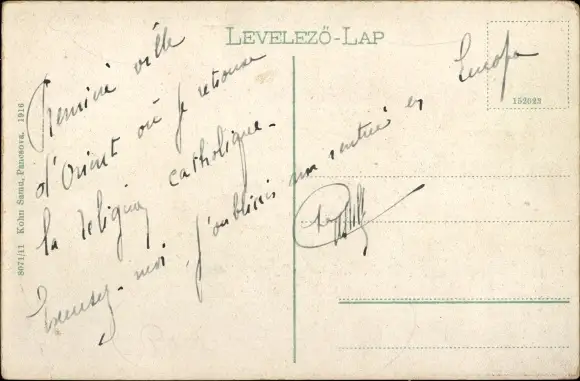 LEVELEZŐ-LAP
152023
8071/11 Kohn Samu, Pancsova. 1916
ville
d'Orient où je retrouve
la religion catholique.
Excusez-moi j'oubliais ma rentrée en Europe